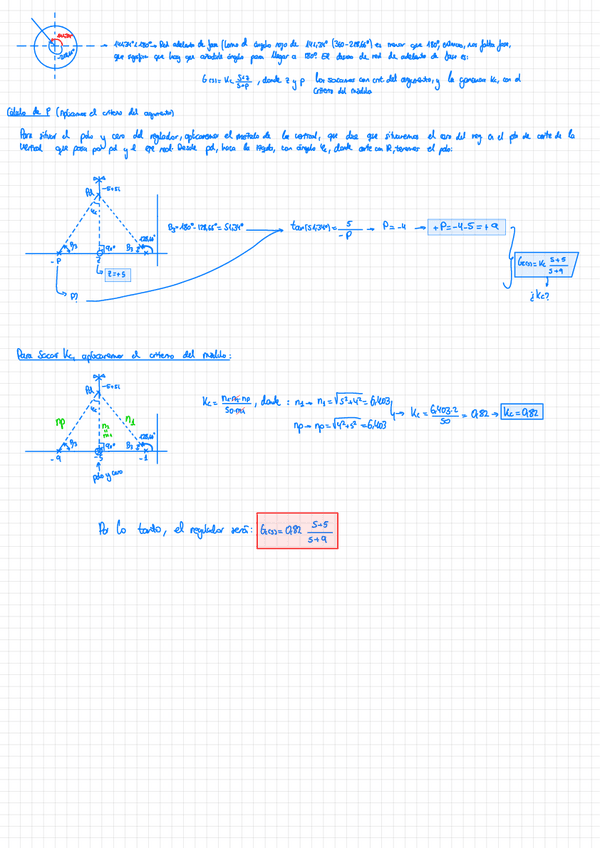 → 141,34° < 180° → Red adelanto de fase (Como el ángulo rojo de 141,34° (360-218,66°) es menor que 180°, entonces, nos falta fase,
que significa que hay que añadirle ángulo para llegar a 180°. El diseño de red de adelanto de fase es:
G(s) = Kc · s+z / s+p, donde z y p los sacamos con crit. del argumento, y la ganancia Kc, con el
criterio del módulo
Cálculo de P (Aplicamos el criterio del argumento)
Para situar el polo y cero del regulador, aplicaremos el método de la vertical, que dice que situaremos el cero del reg en el pto de corte de la
vertical que pasa por pd y el eje real. Desde pd, hacia la izqda, con ángulo φc, donde corte con R, tenemos el polo:
Pd -5+5i
φc
θ3 90° θ2 128,66°
-P
z=+5
P?
θ3=180°-128,66°=51,34°
tan(51,34°)= 5 / -P → P=-4 → +P=-4-5=+9
G(s)=Kc s+5 / s+9
¿Kc?
Para sacar Kc, aplicaremos el criterio del módulo:
Pd -5+5i
φc
np n1
θ3 90° θ2 128,66°
-9 -5 -1
polo y cero
Kc = n1·n2·np / 50·m1, donde: n1 → n1=√5²+4² = 6,403
np → np=√4²+5² = 6,403
→ Kc = 6,403·2 / 50 = 0,82 → Kc=0,82
Por lo tanto, el regulador será: G(s)= 0,82 s+5 / s+9